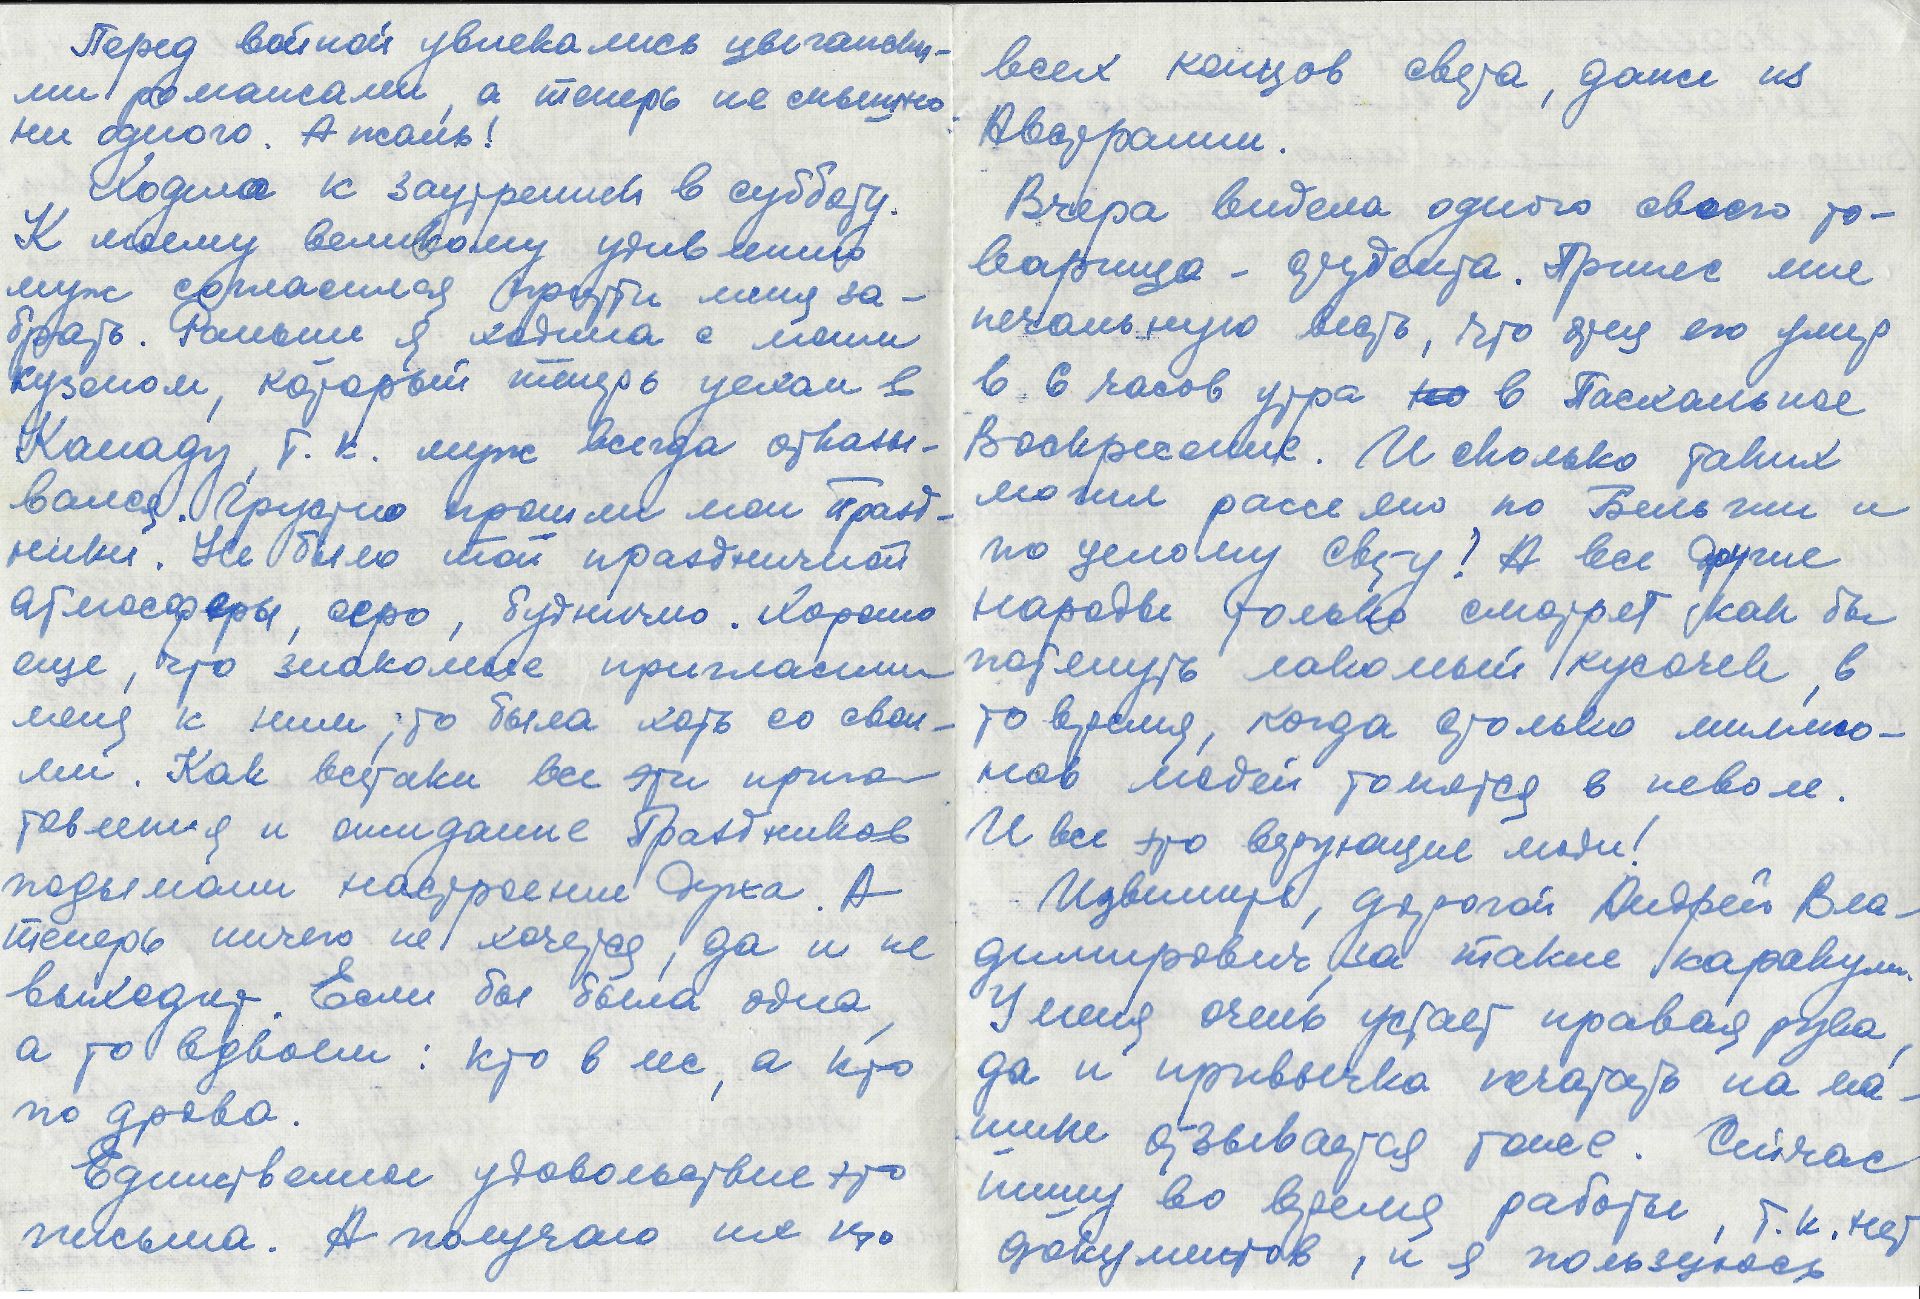 Перед войной увлекались цыгански-
ми романсами, а теперь не слышно
ни одного. А жаль!
Ходила к заутренней в субботу.
К моему великому удивлению
муж согласился прийти меня за-
брать. Раньше я ходила с моим
кузеном, который теперь уехал в
Канаду, т. к. муж всегда отказы-
вался. Грустно прошли мои Празд-
ники. Не было той праздничной
атмосферы, серо, буднично. Хорошо
еще, что знакомые пригласили
меня к ним, то была хоть со свои-
ми. Как всетаки все эти приго-
товления и ожидание Праздников
подымали настроение духа. А
теперь ничего не хочется, да и не
выходит. Если бы была одна,
а то вдвоем: кто в лес, а кто
по дрова.
Единственное удовольствие это
письма. А получаю их изо
всех концов света, даже из
Австралии.
Вчера видела одного своего то-
варища - студента. Принес мне
печальную весть, что отец его умер
в 6 часов утра в Пасхальное
Воскресение. И сколько таких
могил рассеяно по Бельгии и
по целому свету! А все другие
народы только смотрят как бы
потянуть лакомый кусочек, в
то время, когда столько миллио-
нов людей томятся в неволе.
И все это верующие люди!
Извините, дорогой Андрей Вла-
димирович, за такие каракули.
У меня очень устает правая рука,
да и привычка печатать на ма-
шине отзывается тоже. Сейчас
пишу во время работы, т. к. нет
документов, и я пользуюсь